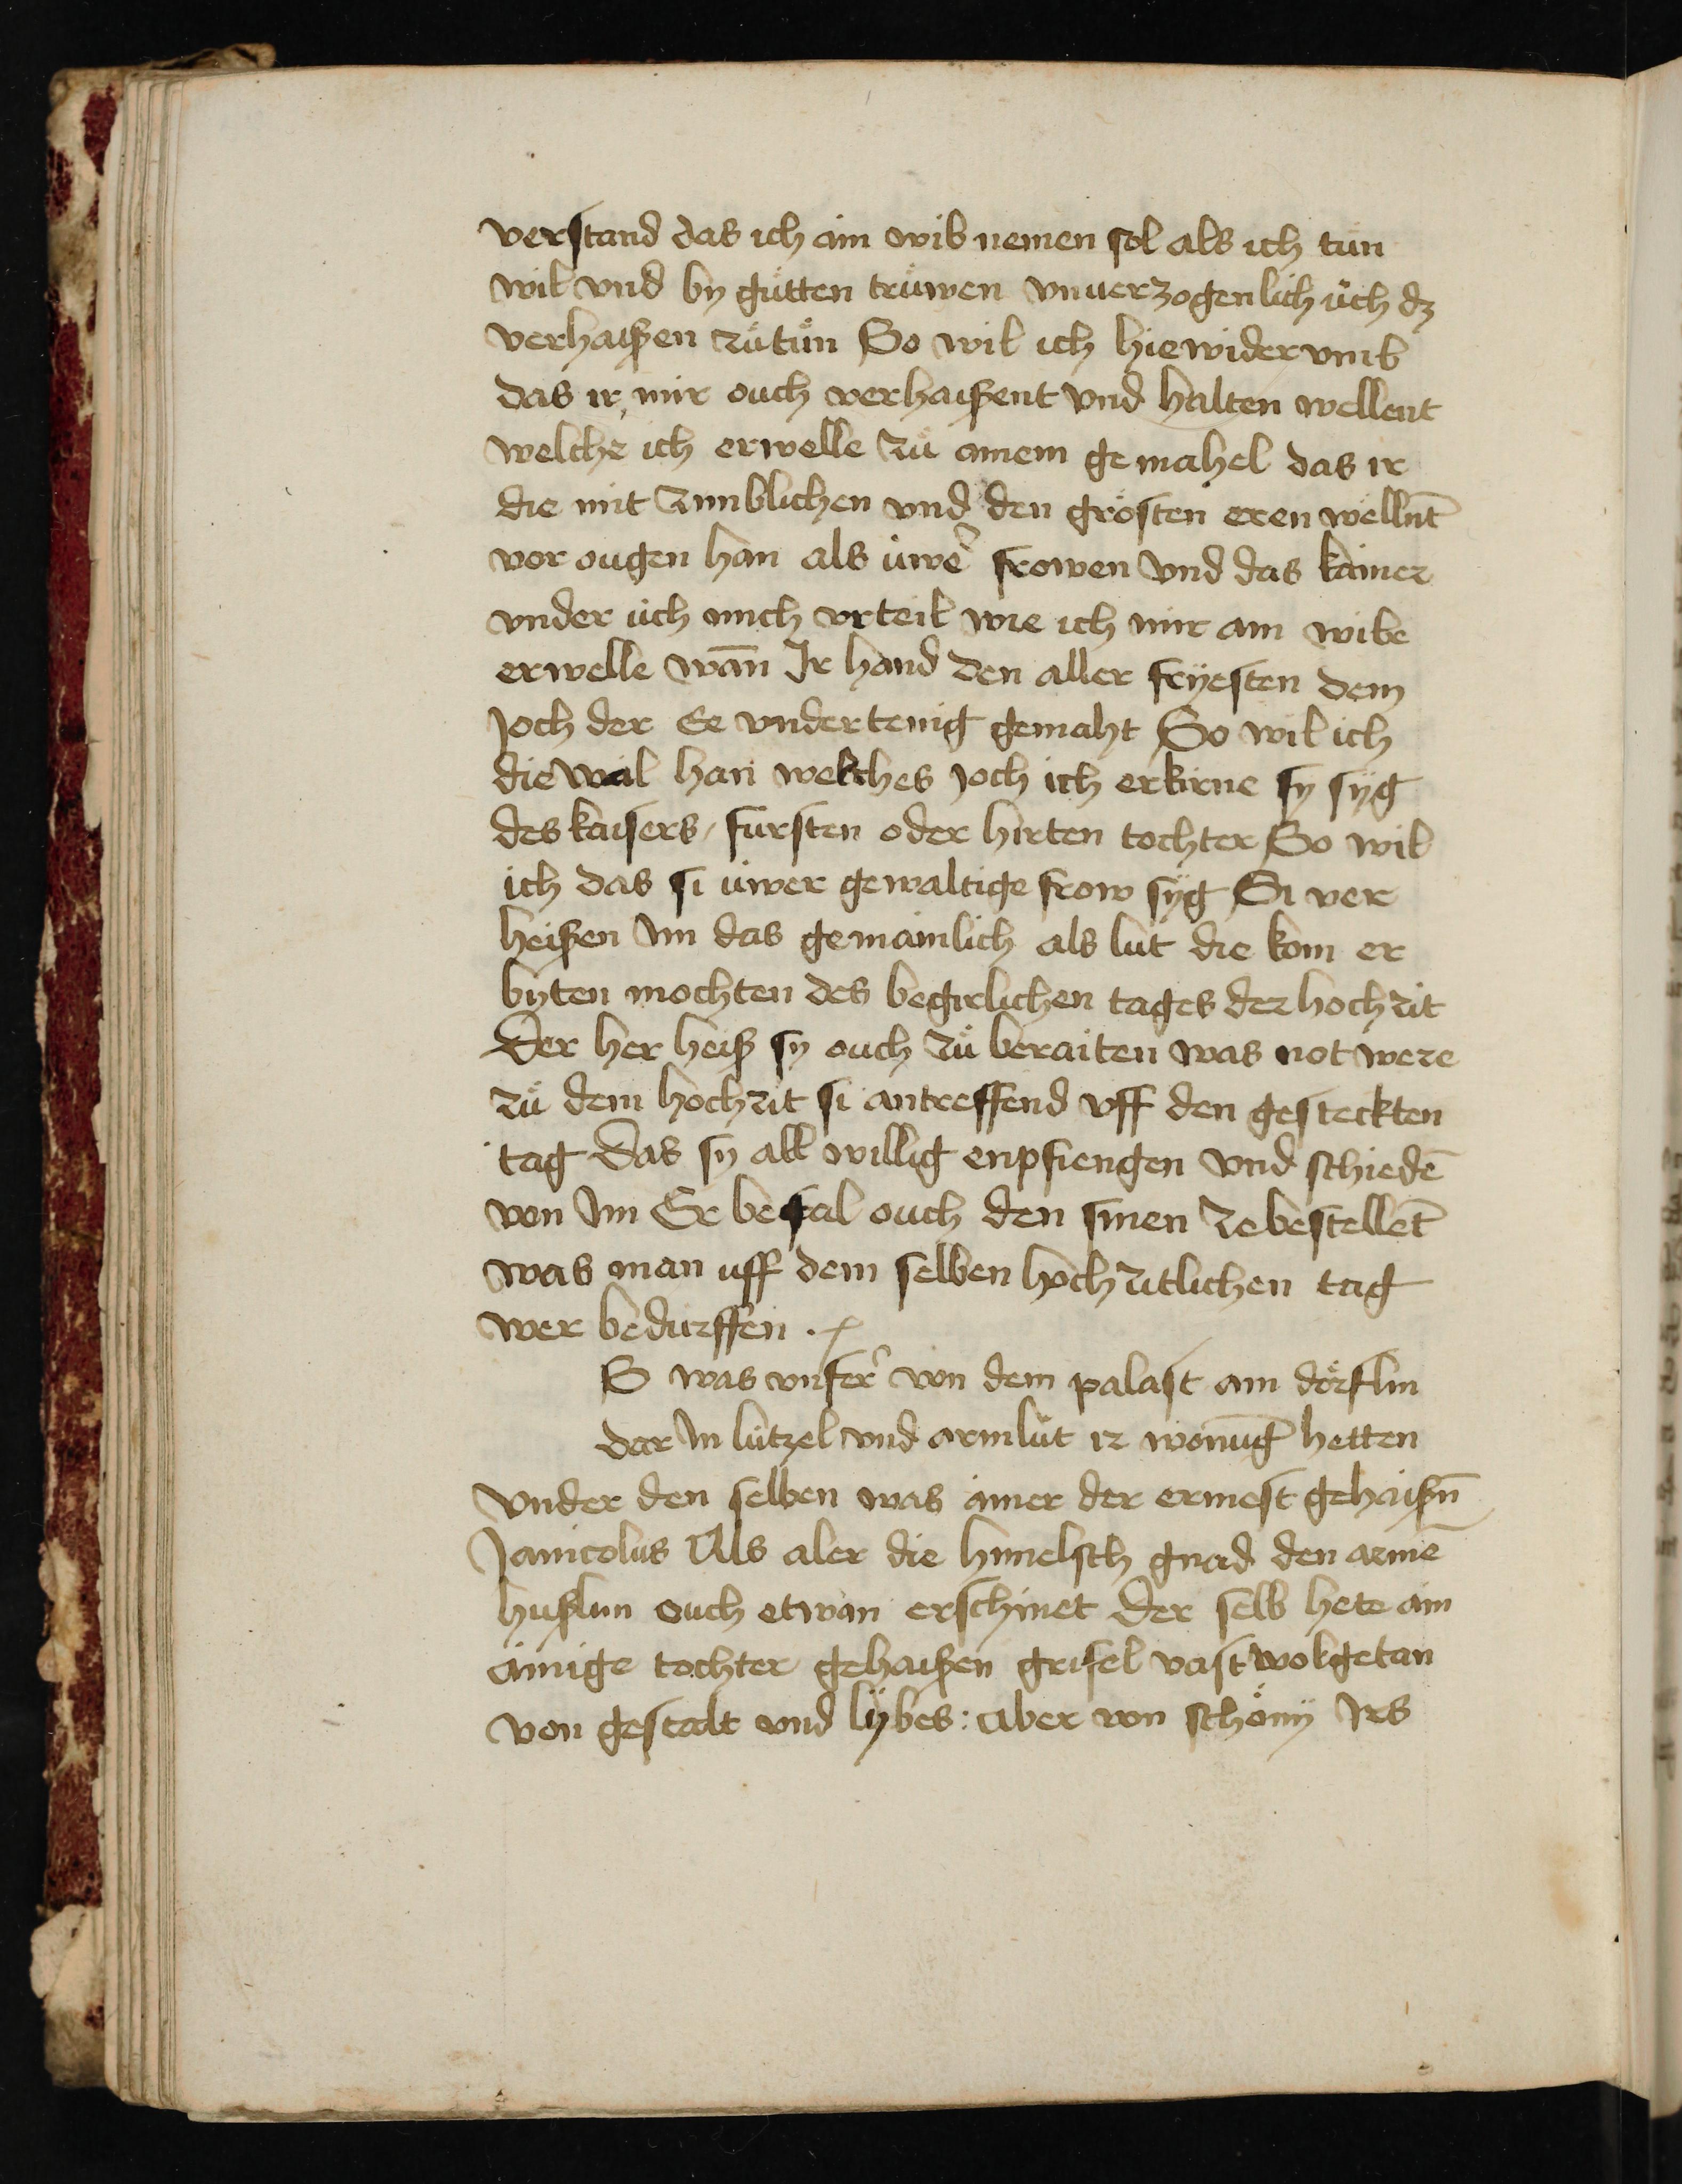 verstand das ich ain wib nemen sol als ich tůn
wil vnd by gůtten trüwen vnuerzogenlich üch dz
verhaissen zů tůn So wil ich hie widervmb
das ir mir ouch verhaissent vnd halten wellent
welche ich erwelle zů ainem gemahel das ir
die mit zimblichen vnd den grösten eren wellnt̄
vor ougen han als üwer̄ frowen vnd das kainer
vnder üch mich vrteil wie ich mir ain wibe
erwelle wan̄ Ir hand den aller fryesten dem
Joch der Ee vndertenig gemaht So wil ich
die wal han welches Joch ich erkirne sy syg
des kaisers / fürsten oder hirten tochter So wil
ich das si üwer gewaltige frow syg Si ver
heissen Im das gemainlich als lüt die kom er
byten mochten des begirlichen tages der hochzit
Der her heiß sy ouch zů beraiten was not were
zů dem hochzit si antreffend vff den gesteckten
tag Das sy all willig enpfiengen vnd schiedē
von Im Er befal ouch den sinen ze bestellet̄
was man vff dem selben hochzitlichen tag
wer bedürffen ./
S was vnfer̄ von dem palast ain dörflin
dar In lützel vnd arm lüt ir wonuḡ hetten
Vnder den selben was ainer der ermest gehaißn̄
Janicolus Als aber die himelsch gnad den armē
hußlun ouch etwan erschinet Der selb hete ain
ainige tochter gehaissen grisel vast wolgetan
von gestalt vnd lybes : aber von schöny Irs